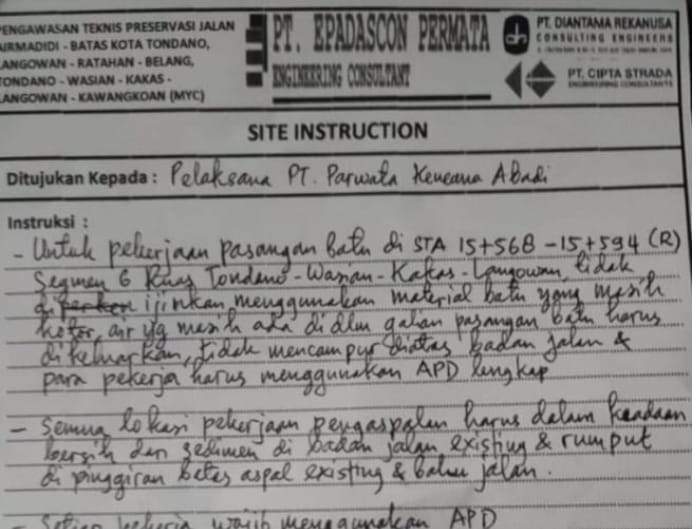 PENGAWASAN TEKNIS PRESERVASI JALAN
AIRMADIDI - BATAS KOTA TONDANO,
LANGOWAN - RATAHAN - BELANG,
TONDANO - WASIAN - KAKAS -
LANGOWAN - KAWANGKOAN (MYC)
PT. EPADASCON PERMATA
ENGINEERING CONSULTANT
PT. DIANTAMA REKANUSA
CONSULTING ENGINEERS
PT. CIPTA STRADA
ENGINEERING CONSULTANTS
SITE INSTRUCTION
Ditujukan Kepada : Pelaksana PT. Parwata Kencana Abadi
Instruksi :
- Untuk pekerjaan pasangan batu di STA 15+568 - 15+594 (R)
Segmen 6 Ruas Tondano - Wasian - Kakas - Langowan, tidak
ijinkan menggunakan material batu yang masih
kotor, air yg masih ada didlm galian pasangan batu harus
dikeluarkan, tidak mencampur diatas badan jalan &
para pekerja harus menggunakan APD lengkap
- Semua lokasi pekerjaan pengaspalan harus dalam keadaan
bersih dari sedimen di badan jalan existing & rumput
di pinggiran batas aspal existing & bahu jalan.
- Setiap pekerja wajib menggunakan APD